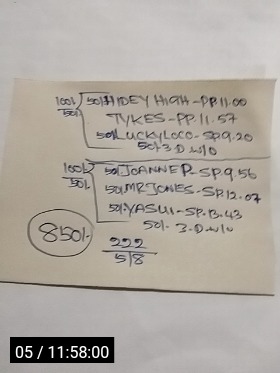 100/ 50/ HIDEY HIGH - PP.11.00
50/. TYKES - PP.11.57
50/ LUCKYLOCO - SP.9.20
50/- 3.D.W/O
100/ 50/ JOANNER - SP.9.56
50/. 50/ MRJONES - SP.12.07
50/. YASUI - SP.13.43
50/. 3.D.W/O
850/-
222
5/8
05 / 11:58:00